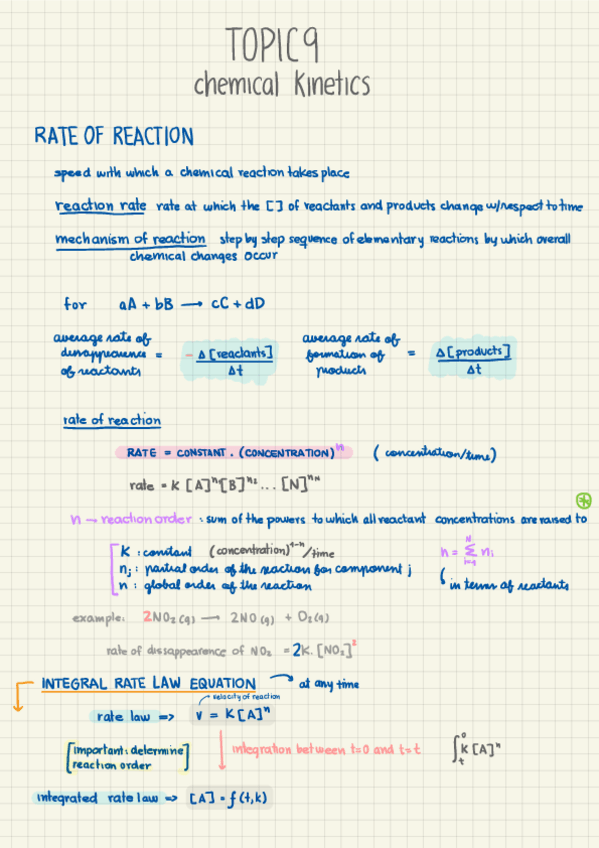 TOPIC 9
chemical Kinetics
RATE OF REACTION
speed with which a chemical reaction takes place
reaction rate rate at which the [ ] of reactants and products change w/respect to time
mechanism of reaction step by step sequence of elementary reactions by which overall
chemical changes occur
for aA + bB → cC + dD
average rate of disappearence of reactants = - Δ[reactants] / Δt
average rate of formation of products = Δ[products] / Δt
rate of reaction
RATE = CONSTANT . (CONCENTRATION)^n (concentration/time)
rate = K [A]^n[B]^n2 ... [N]^nN
n → reaction order : sum of the powers to which all reactant concentrations are raised to
K : constant (concentration)^1-n/time
nj : partial order of the reaction for component j
n : global order of the reaction
n = Σ^N i=1 ni
in terms of reactants
example: 2NO₂(g) → 2NO(g) + O₂(g)
rate of dissappearence of NO₂ = 2K.[NO₂]²
INTEGRAL RATE LAW EQUATION → at any time
velocity of reaction
rate law => v = K[A]^n
[important: determine
reaction order]
integration between t=0 and t=t
∫ 0 t K[A]^n
integrated rate law => [A] = f(t,k)